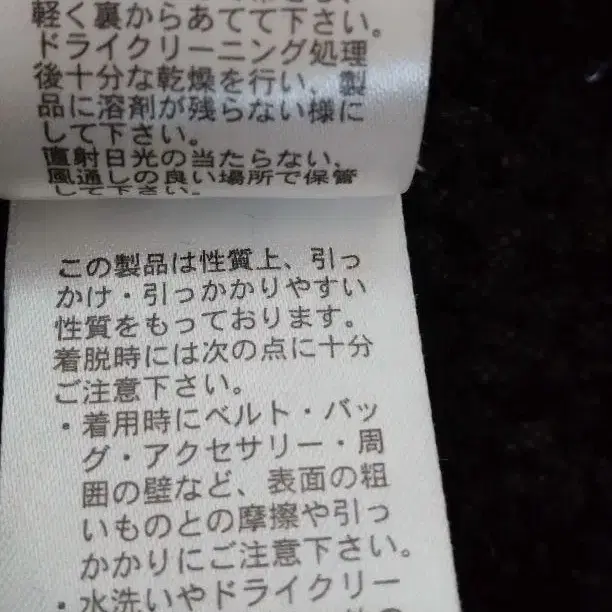 軽く裏からあてて下さい。
ドライクリーニング処理
後十分な乾燥を行い、製
品に溶剤が残らない様に
して下さい。
直射日光の当たらない、
風通しの良い場所で保管
して下さい。
この製品は性質上、引っ
かけ・引っかかりやすい
性質をもっております。
着脱時には次の点に十分
ご注意下さい。
・着用時にベルト・バッ
グ・アクセサリー・周
囲の壁など、表面の粗
いものとの摩擦や引っ
かかりにご注意下さい。
・水洗いやドライクリー